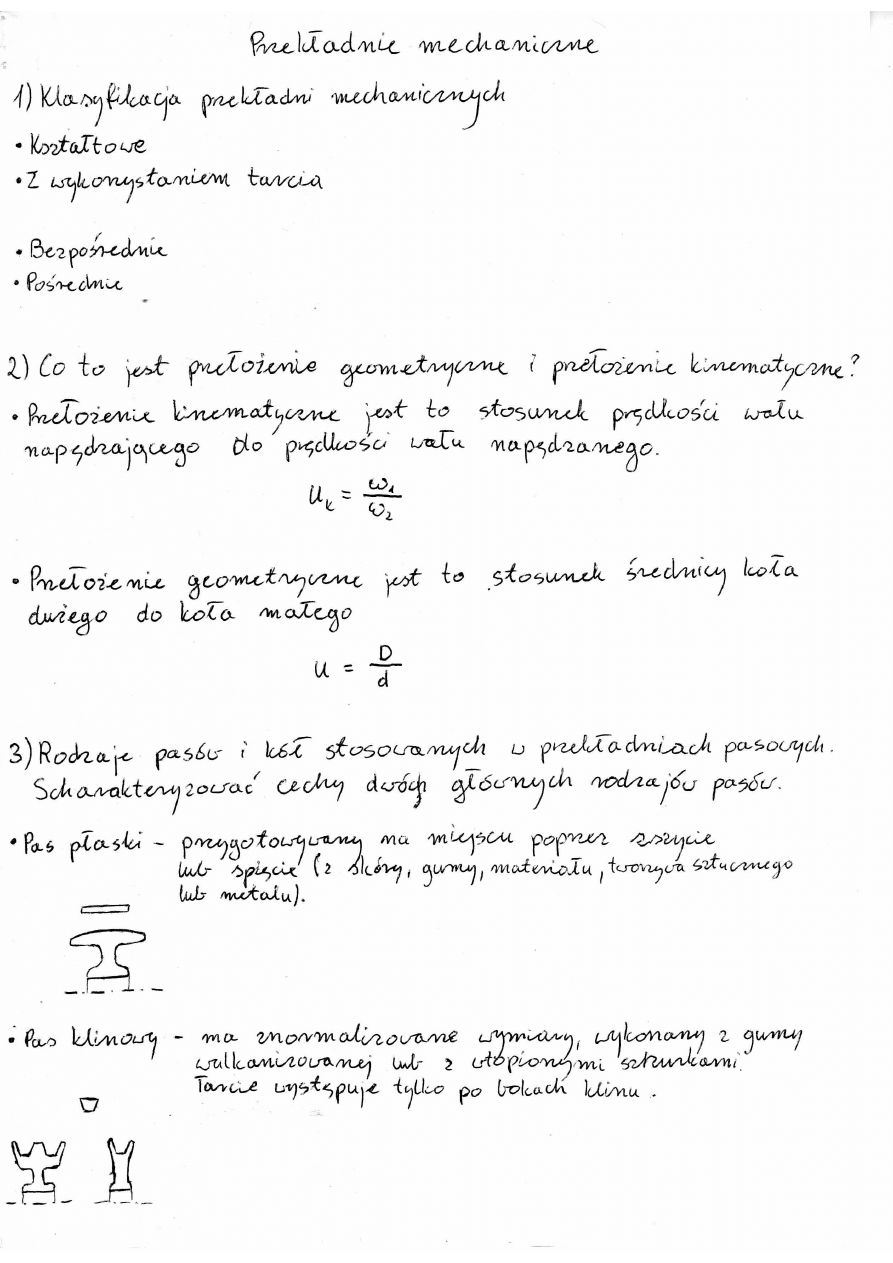 Przekładnie mechaniczne
1) Klasyfikacja przekładni mechanicznych
• Kształtowe
• Z wykorzystaniem tarcia
• Bezpośrednie
• Pośrednie
2) Co to jest przełożenie geometryczne i przełożenie kinematyczne?
• Przełożenie kinematyczne jest to stosunek prędkości wału
napędzającego do prędkości wału napędzanego.
u_k = ω₁/ω₂
• Przełożenie geometryczne jest to stosunek średnicy koła
dużego do koła małego
u = D/d
3) Rodzaje pasów i kół stosowanych w przekładniach pasowych.
Scharakteryzować cechy dwóch głównych rodzajów pasów.
• Pas płaski - przygotowywany na miejscu poprzez zszycie
lub spięcie (z skóry, gumy, materiału, tworzywa sztucznego
lub metalu).
• Pas klinowy - ma znormalizowane wymiary, wykonany z gumy
wulkanizowanej lub z utopionymi sznurkami.
Tarcie występuje tylko po bokach klinu.